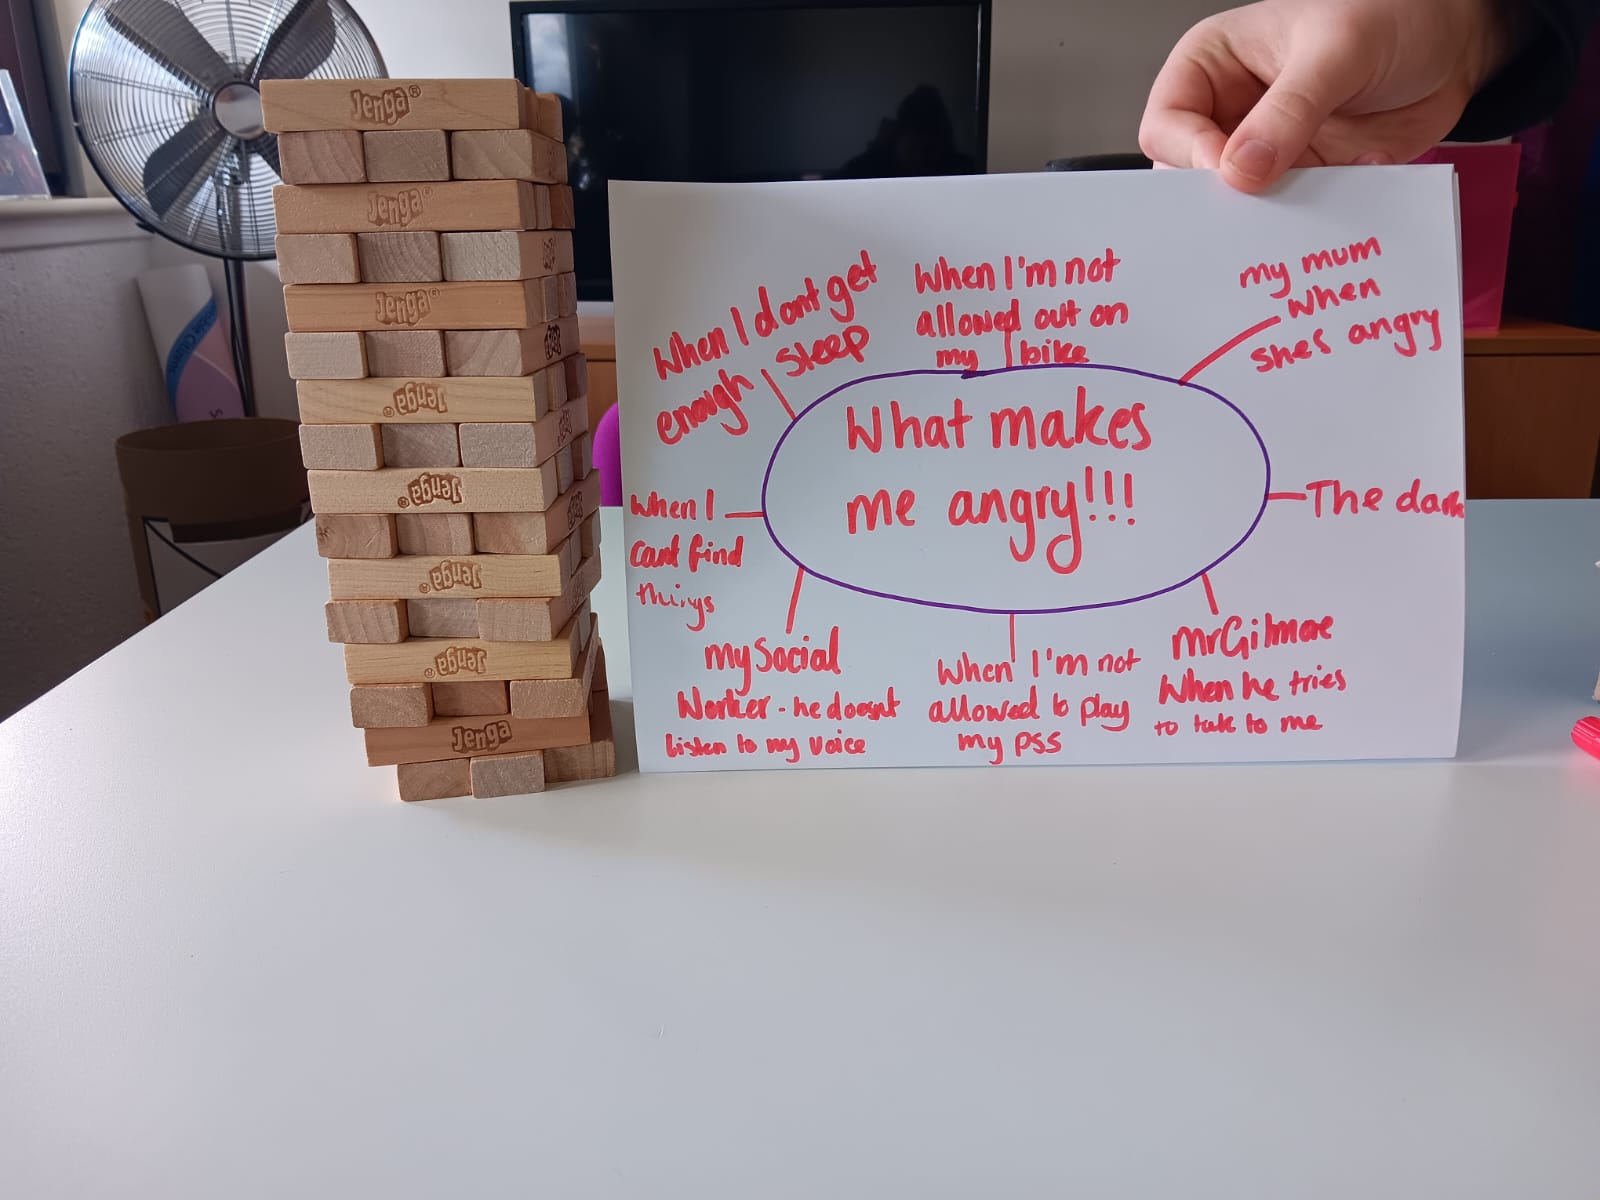 Jenga®
Jenga®
Jenga®
Jenga®
Jenga®
Jenga®
Jenga
Jenga
What makes
me angry!!!
When I dont get
enough sleep
When I'm not
allowed out on
my bike
my mum
when
shes angry
The dark
MrGilmore
When he tries
to talk to me
When I'm not
allowed to play
my PSS
my Social
Worker - he doesnt
listen to my voice
When I
cant find
things